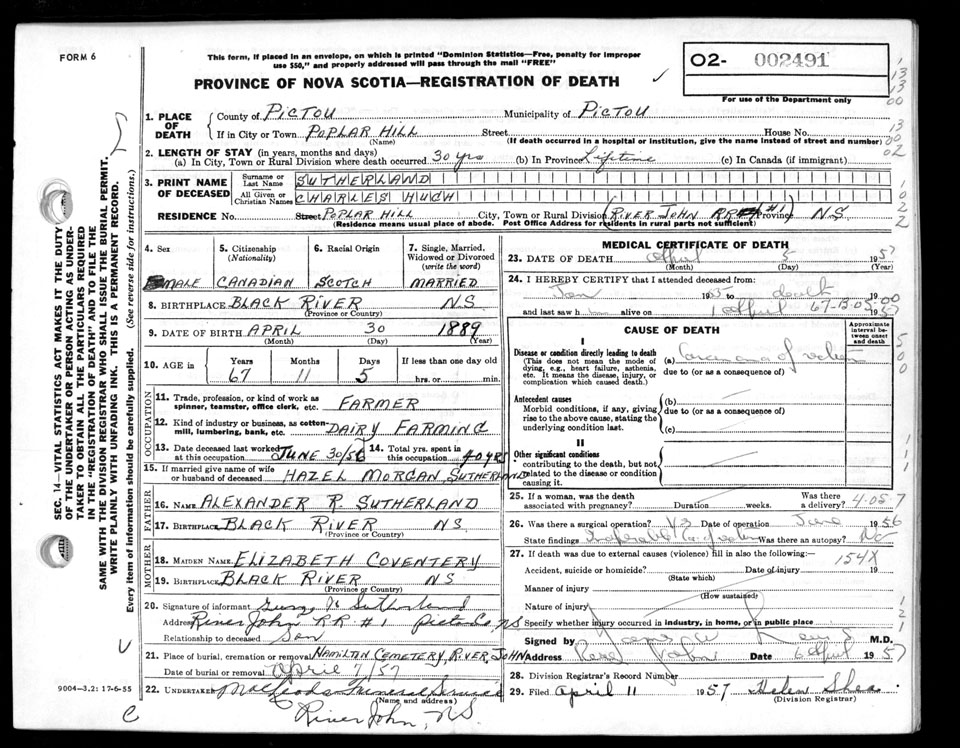 FORM 6
This form, if placed in an envelope, on which is printed "Dominion Statistics—Free, penalty for improper
use $50," and properly addressed will pass through the mail "FREE"
PROVINCE OF NOVA SCOTIA—REGISTRATION OF DEATH
O2- 002491
For use of the Department only
SEC. 14—VITAL STATISTICS ACT MAKES IT THE DUTY
OF THE UNDERTAKER OR PERSON ACTING AS UNDER-
TAKER TO OBTAIN ALL THE PARTICULARS REQUIRED
IN THE "REGISTRATION OF DEATH" AND TO FILE THE
SAME WITH THE DIVISION REGISTRAR WHO SHALL ISSUE THE BURIAL PERMIT.
WRITE PLAINLY WITH UNFADING INK. THIS IS A PERMANENT RECORD.
Every item of information should be carefully supplied. (See reverse side for instructions.)
1. PLACE OF DEATH
County of PICTOU Municipality of PICTOU
If in City or Town POPLAR HILL Street House No.
(Name) (If death occurred in a hospital or institution, give the name instead of street and number)
2. LENGTH OF STAY (in years, months and days)
(a) In City, Town or Rural Division where death occurred 30 yrs (b) In Province Lifetime (c) In Canada (if immigrant)
3. PRINT NAME OF DECEASED
Surname or Last Name SUTHERLAND
All Given or Christian Names CHARLES HUGH
RESIDENCE No. Street POPLAR HILL City, Town or Rural Division (RIVER JOHN RR #1) Province N.S.
(Residence means usual place of abode. Post Office Address for residents in rural parts not sufficient)
4. Sex MALE
5. Citizenship (Nationality) CANADIAN
6. Racial Origin SCOTCH
7. Single, Married, Widowed or Divorced (write the word) MARRIED
8. BIRTHPLACE BLACK RIVER NS
(Province or Country)
9. DATE OF BIRTH APRIL 30 1889
(Month) (Day) (Year)
10. AGE in Years Months Days If less than one day old
67 11 5 hrs. or min.
OCCUPATION
11. Trade, profession, or kind of work as spinner, teamster, office clerk, etc. FARMER
12. Kind of industry or business, as cotton-mill, lumbering, bank, etc. DAIRY FARMING
13. Date deceased last worked at this occupation JUNE 30/56 14. Total yrs. spent in this occupation 40 YRS
15. If married give name of wife or husband of deceased HAZEL MORGAN SUTHERLAND
FATHER
16. NAME ALEXANDER R. SUTHERLAND
17. BIRTHPLACE BLACK RIVER NS
(Province or Country)
MOTHER
18. MAIDEN NAME ELIZABETH COVENTERY
19. BIRTHPLACE BLACK RIVER NS
(Province or Country)
20. Signature of informant Sutherland
Address River John R.R. #1 Pictou Co, NS
Relationship to deceased Son
21. Place of burial, cremation or removal HAMILTON CEMETERY, RIVER JOHN
Date of burial or removal April 7/57
22. UNDERTAKER MacLeods Funeral Service
(Name and address)
River John, NS.
9004—3.2: 17-6-55
MEDICAL CERTIFICATE OF DEATH
23. DATE OF DEATH April 5 1957
(Month) (Day) (Year)
24. I HEREBY CERTIFY that I attended deceased from:
Jan to death 19
and last saw h alive on 1 April 1957
67-13-05-00
CAUSE OF DEATH
Approximate interval between onset and death
I
Disease or condition directly leading to death
(This does not mean the mode of dying, e.g., heart failure, asthenia, etc. It means the disease, injury, or complication which caused death.)
(a) Carcinoma of
due to (or as a consequence of)
Antecedent causes
Morbid conditions, if any, giving rise to the above cause, stating the underlying condition last.
(b)
due to (or as a consequence of)
(c)
II
Other significant conditions
contributing to the death, but not related to the disease or condition causing it.
25. If a woman, was the death associated with pregnancy? Duration weeks. Was there a delivery? 4-05 7
26. Was there a surgical operation? Date of operation June 1956
State findings Was there an autopsy? No
27. If death was due to external causes (violence) fill in also the following:—
154X
Accident, suicide or homicide? Date of injury 19
(State which)
Manner of injury
(How sustained)
Nature of injury
Specify whether injury occurred in industry, in home, or in public place
Signed by M.D.
Address River John Date 6 April 1957
28. Division Registrar's Record Number
29. Filed April 11 1957 Helen Shea
(Division Registrar)